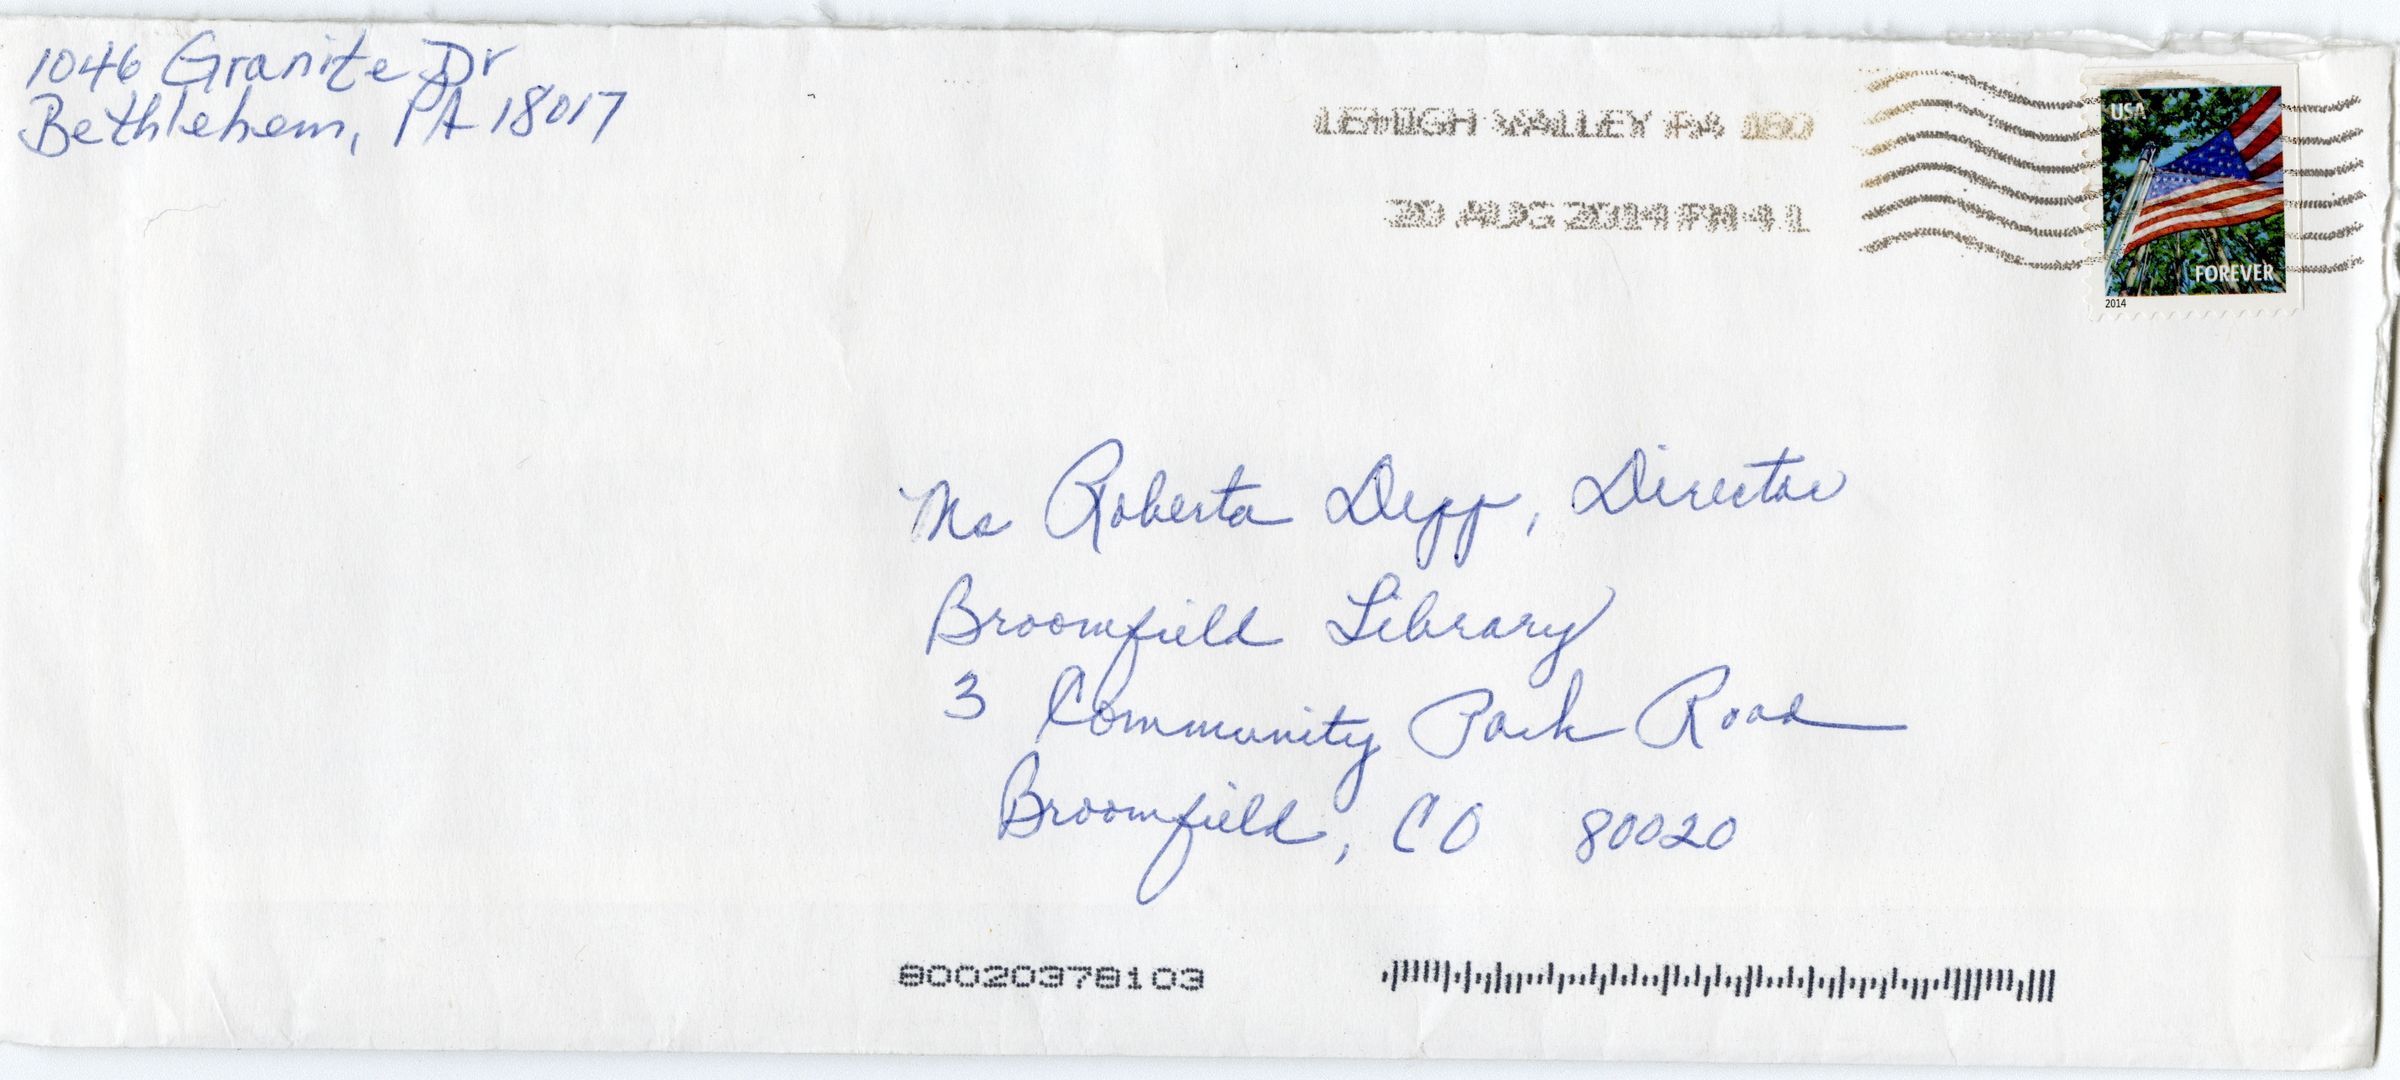 1046 Granite Dr
Bethlehem, PA 18017
LEHIGH VALLEY PA 180
20 AUG 2014 PM 4 L
USA
FOREVER
2014
Ms Roberta Depp, Director
Broomfield Library
3 Community Park Road
Broomfield, CO 80020
80020378103